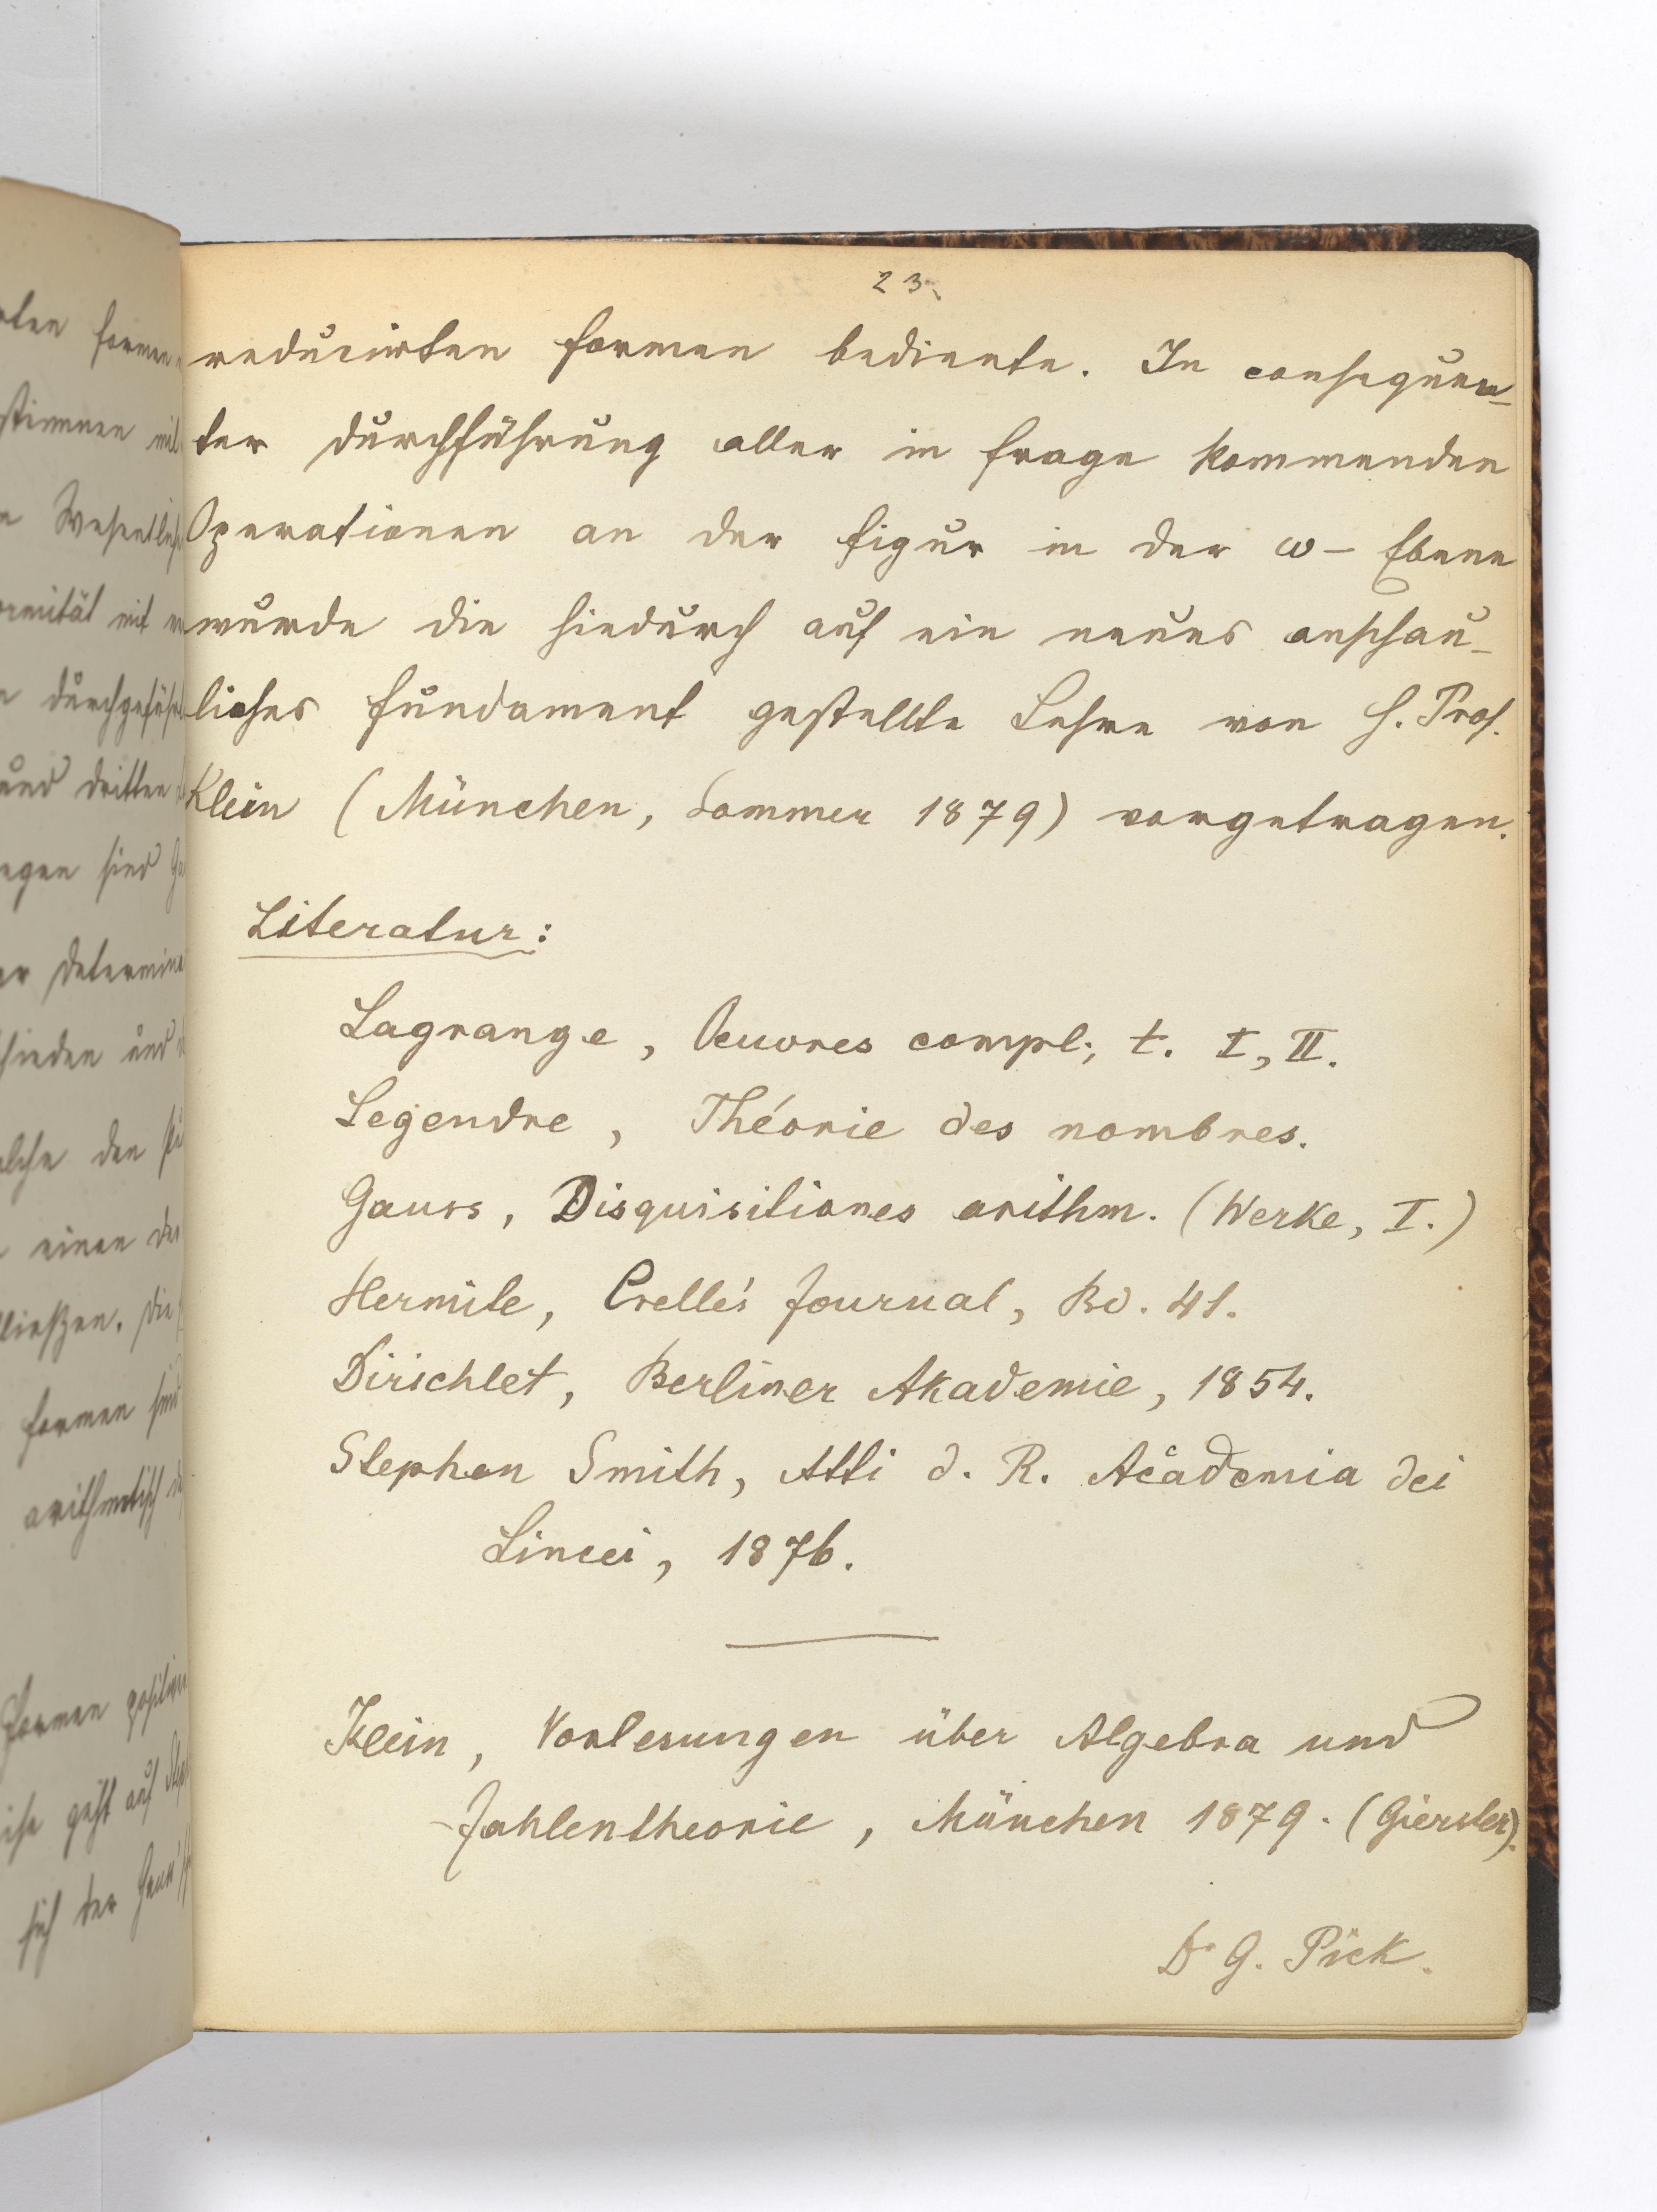 23.
reducirten Formen bediente. In consequen-
ter Durchführung aller in Frage kommenden
Operationen an der Figur in der ω- Ebene
wurde die hiedurch auf ein neues anschau-
liches Fundament gestellte Lehre von H. Prof.
Klein (München, Sommer 1879) vorgetragen.
Literatur:
Lagrange, Oeuvres compl., t. I, II.
Legendre, Théorie des nombres.
Gauss, Disquisitiones arithm. (Werke, I.)
Hermite, Crelle's Journal, Bd. 41.
Dirichlet, Berliner Akademie, 1854.
Stephen Smith, Atti d. R. Academia dei
Lincei, 1876.
Klein, Vorlesungen über Algebra und
Zahlentheorie, München 1879. (Gierster).
Dr G. Pick.